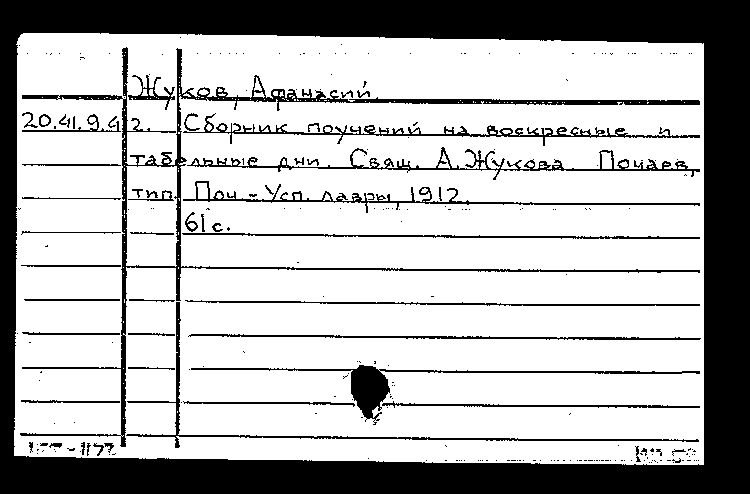 Жуков, Афанасий.
20.41.9.42. Сборник поучений на воскресные и
табельные дни. Свящ. А. Жукова. Почаев,
тип. Поч-Усп. лавры, 1912.
61 с.